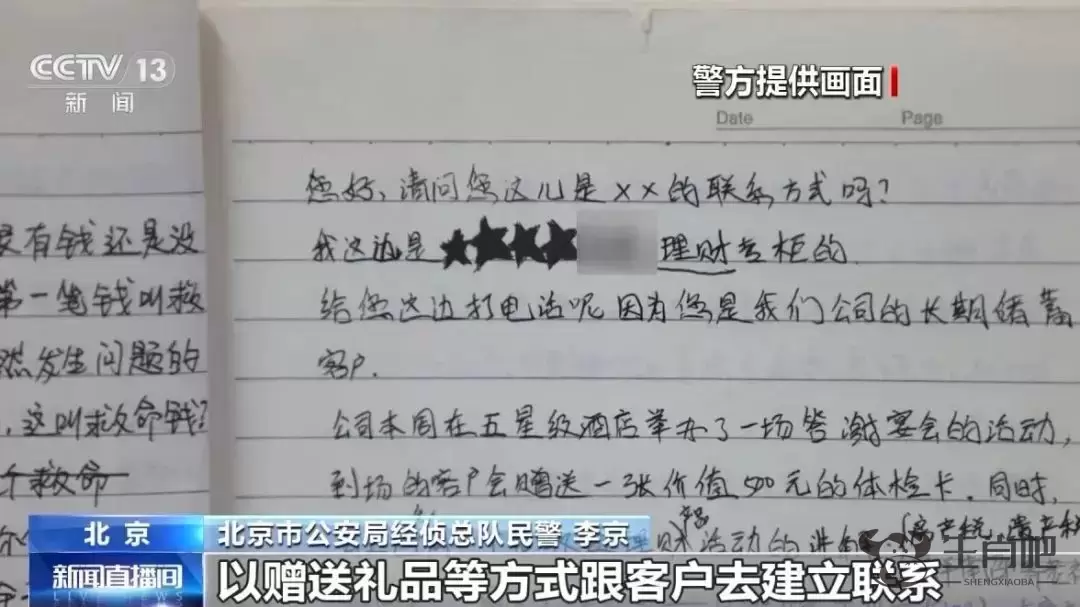 CCTV 13
新闻
警方提供画面
Date Page
您好、请问您这儿是××的联系方式吗?
我这边是 理财专柜的
给您这边打电话呢因为您是我们公司的长期储蓄
客户.
公司本周在五星级酒店举办了一场答谢宴会的活动,
到场的客户会赠送一张价值500元的体检卡.同时,
有钱还是没
第一笔钱叫救
然发生问题的
,这叫救命钱
个救命
理财活动的
北京
北京市公安局经侦总队民警 李京
新闻直播间
LIVE NEWS
以赠送礼品等方式跟客户去建立联系
生肖吧
SHENGXIAOBA